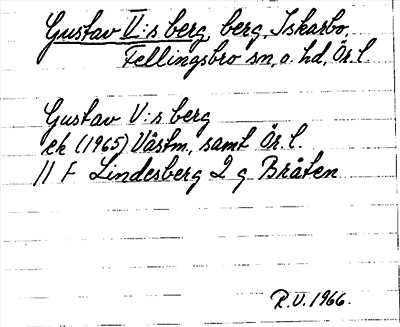 Gustav V:s berg, berg, Iskarbo,
Fellingsbro sn, o. hd, Ör. l.
Gustav V:s berg
ek (1965) Västm, samt Ör. l.
11 F Lindesberg 2 g Bråten
R.V. 1966.